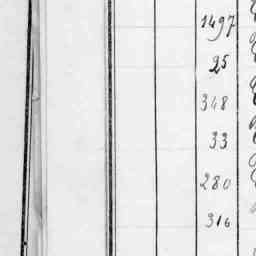 1497
25
348
33
280
316